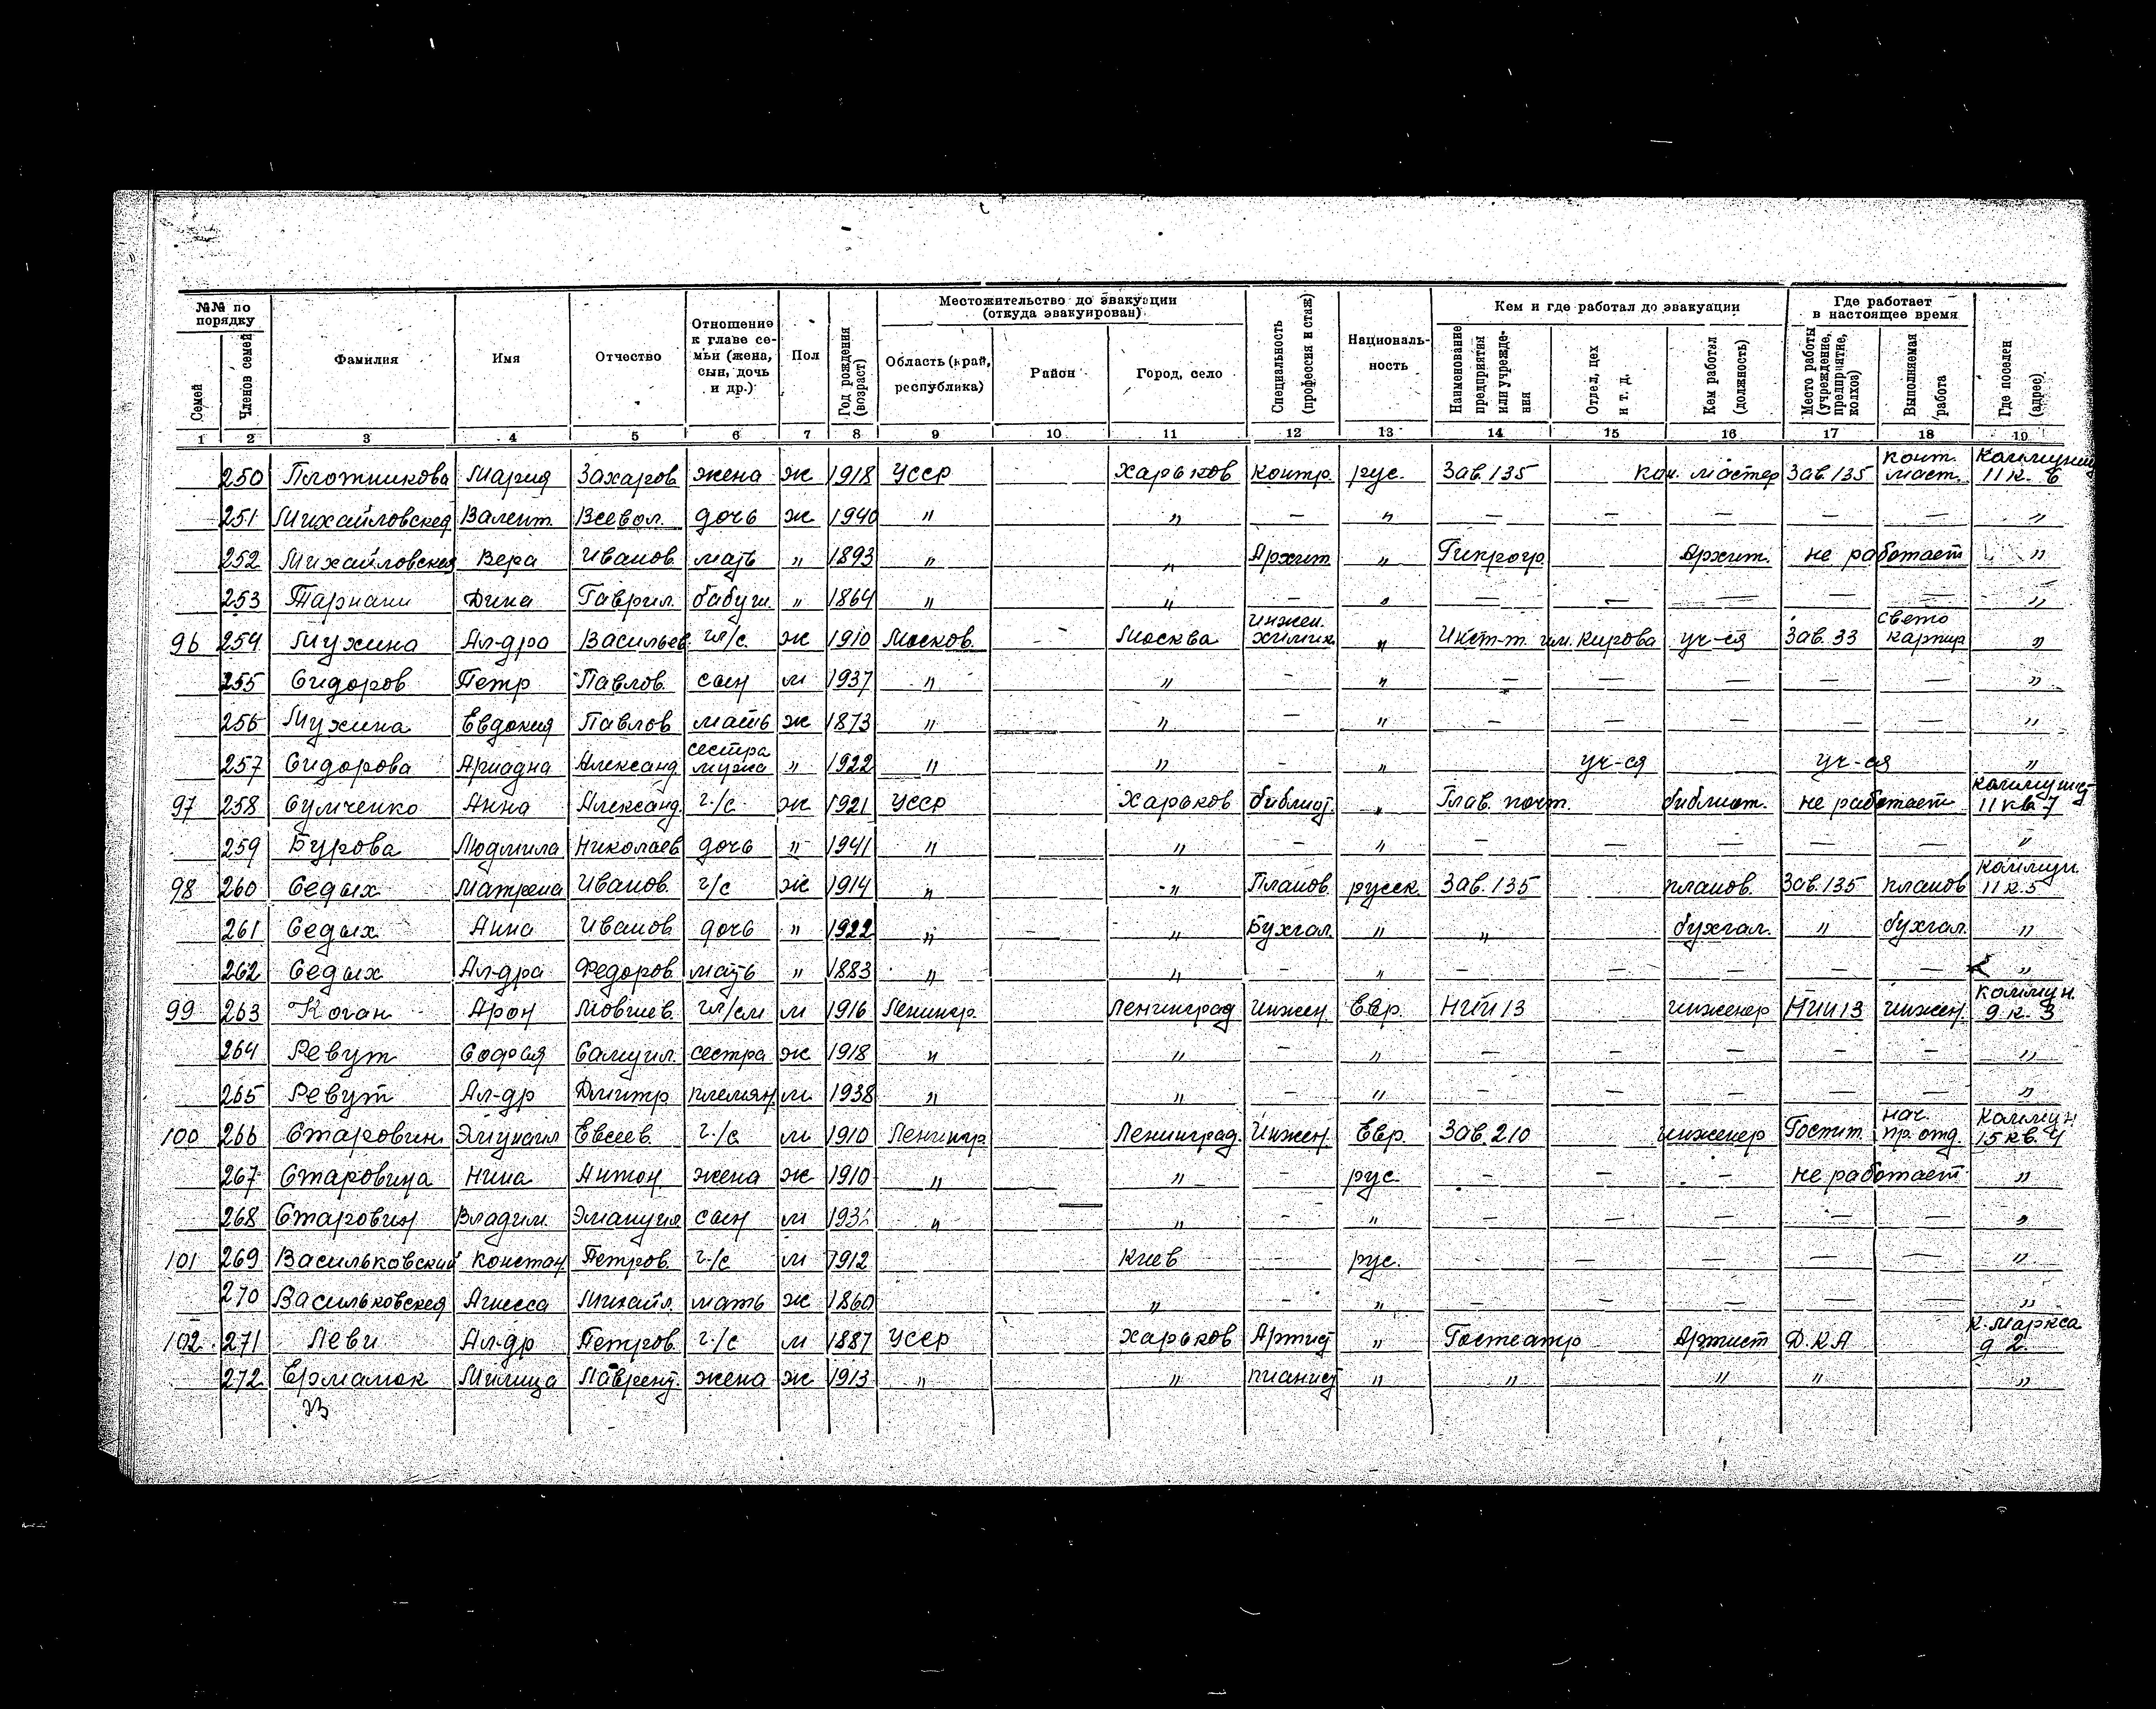 №№ по порядку
Семей
Членов семей
Фамилия
Имя
Отчество
Отношение к главе семьи (жена, сын, дочь и др.)
Пол
Год рождения (возраст)
Местожительство до эвакуации (откуда эвакуирован)
Область (край, республика)
Район
Город, село
Специальность (профессия и стаж)
Национальность
Кем и где работал до эвакуации
Наименование предприятия или учреждения
Отдел, цех и т. д.
Кем работал (должность)
Где работает в настоящее время
Место работы (учреждение, предприятие, колхоз)
Выполняемая работа
Где поселен (адрес)
1 2 3 4 5 6 7 8 9 10 11 12 13 14 15 16 17 18 19
250 Плотникова Мария Захаров жена ж 1918 УССР Харьков контр. рус. Зав. 135 кон. мастер Зав. 135 конт. маст. 11 к. 6
251 Михайловская Валент. Всевол. дочь ж 1940 " " — " — — — — — "
252 Михайловская Вера Иванов. мать " 1893 " " Архит. " Гипрогр. Архит. не работает "
253 Дина Гаврил. бабуш. " 1864 " " — " — — — — — "
96 254 Мухина Ал-дра Васильев. гл/с. ж 1910 Москов. — Москва инжен. химик " Инст-т. им. Кирова уч-ся Зав. 33 свето картир "
255 Сидоров Петр Павлов. сын м 1937 " " — " — — — — — "
256 Мухина Евдокия Павлов мать ж 1873 " " — " — — — — — "
257 Сидорова Ариадна Александ сестра мужа " 1922 " " — " уч-ся уч-ся "
97 258 Сумченко Анна Александ. г/с. ж 1921 УССР Харьков библиот. " Глав. почт. библиот. не работает 11 кв 7
259 Бурова Людмила Николаев дочь " 1941 " " — " — — — — — "
98 260 Седых Матрена Иванов. г/с ж 1914 " " Планов. русск. Зав. 135 планов. Зав. 135 планов Коммун. 11 к. 5
261 Седых Анна Иванов дочь " 1922 " — " Бухгал. " " бухгал. " бухгал. "
262 Седых Ал-дра Федоров мать " 1883 " " — " — — — — — "
99 263 Коган Арон Мовшев. гл/см м 1916 Ленингр. Ленинград Инжен. Евр. НИИ 13 инженер НИИ 13 инжен. Коммун. 9 к. 3
264 Ревут София Самуил. сестра ж 1918 " " — " — — — — — "
265 Ревут Ал-др Дмитр племян. м. 1938 " " — " — — — — — "
100 266 Старовин Евсеев. г/с. м. 1910 Ленингр. Ленинград. Инжен. Евр. Зав. 210 инженер Госпит. нач. пр. отд. Коммун 15 кв. 4
267 Старовина Нина Антон. жена ж 1910 " " — рус. — — — не работает "
268 Старовин Владим. Эмануил сын м " " — " — — — — — "
101 269 Васильковский Констан. Петров. г/с м 1912 Киев — рус. — — — — — "
270 Васильковская Агнесса Михайл. мать ж 1860 " — " — — — — — "
102 271 Леви Ал-др Петров. г/с м 1887 УССР Харьков Артист " Гостеатр Артист Д.К.А К. Маркса д 2
272 Ермамок Милица Лаврент. жена ж 1913 " " пианист " " " " "
23